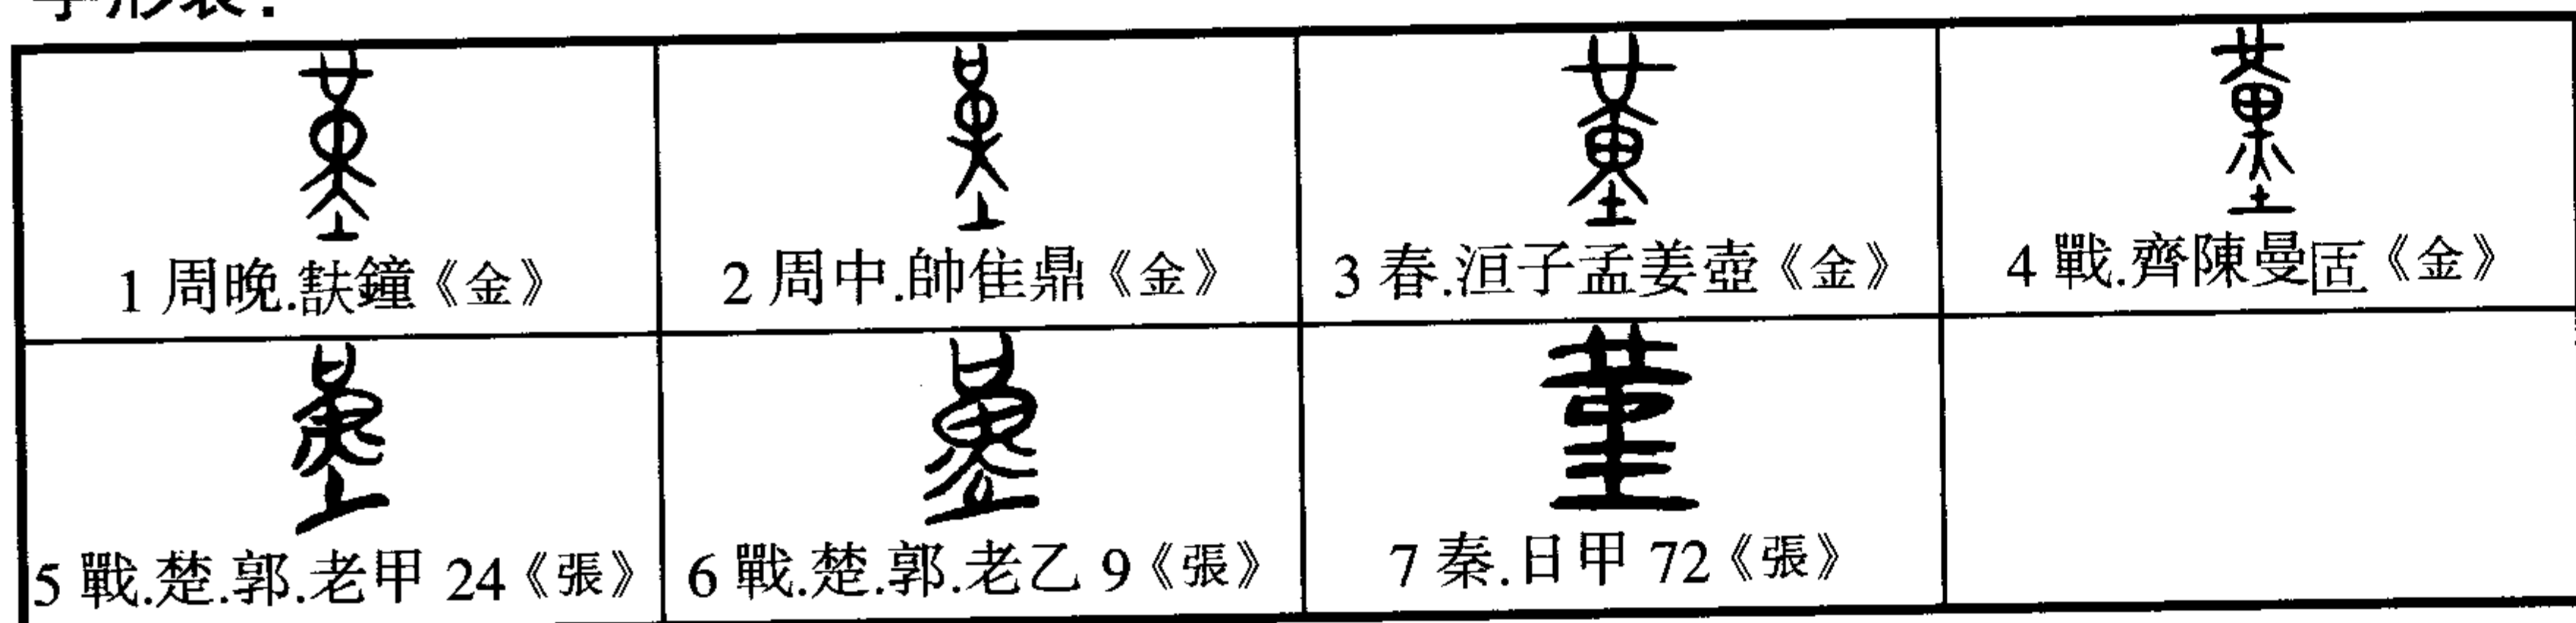 字形表：
1 周晚.㝬鐘《金》
2 周中.帥隹鼎《金》
3 春.洹子孟姜壺《金》
4 戰.齊陳曼𠤳《金》
5 戰.楚.郭.老甲 24《張》
6 戰.楚.郭.老乙 9《張》
7 秦.日甲 72《張》